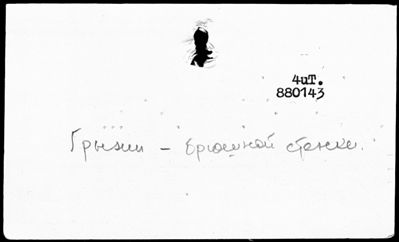 4иТ.
880143
Грыжи – брюшной стенки.